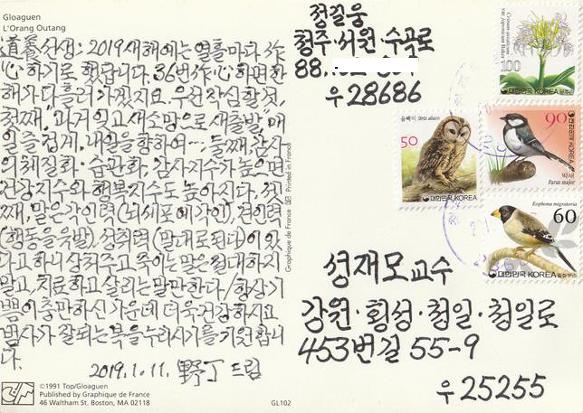 Gloaguen
L'Orang Outang
道義선생: 2019 새해에는 열흘마다 作
心하기로 했답니다. 36번 作心하면 한
해가 다 흘러가겠지요. 우선 작심할 것.
첫째, 과거 잊고 새소망으로 새출발, 매
일 즐겁게, 내일을 향하여… 둘째, 감사
의 체질화·습관화. 감사지수가 높으면
건강지수와 행복지수도 높아지다. 셋
째, 말은 각인력(뇌세포에 각인), 견인력
(행동을 유발), 성취력(말대로 된다)이 있
다고 하니 상처주고 죽이는 말은 절대하지
말고, 치료하고 살리는 말만 한다./항상 기
쁨이 충만하신 가운데 더욱 건강하시고
범사가 잘되는 복을 누리시기를 기원합니
다.
2019.1.11. 野丁 드림
©1991 Top/Gloaguen
Published by Graphique de France
46 Waltham St. Boston, MA 02118
GL102
Graphique de France
Printed in France
정길웅
청주·서원·수곡로
88.
우28686
100
대한민국 KOREA
50
올빼미 Strix aluco
대한민국 KOREA
90
대한민국 KOREA
박새
Parus major
Eophona migratoria
60
대한민국 KOREA
성재모교수
강원·횡성·청일·청일로
453번길 55-9
우25255